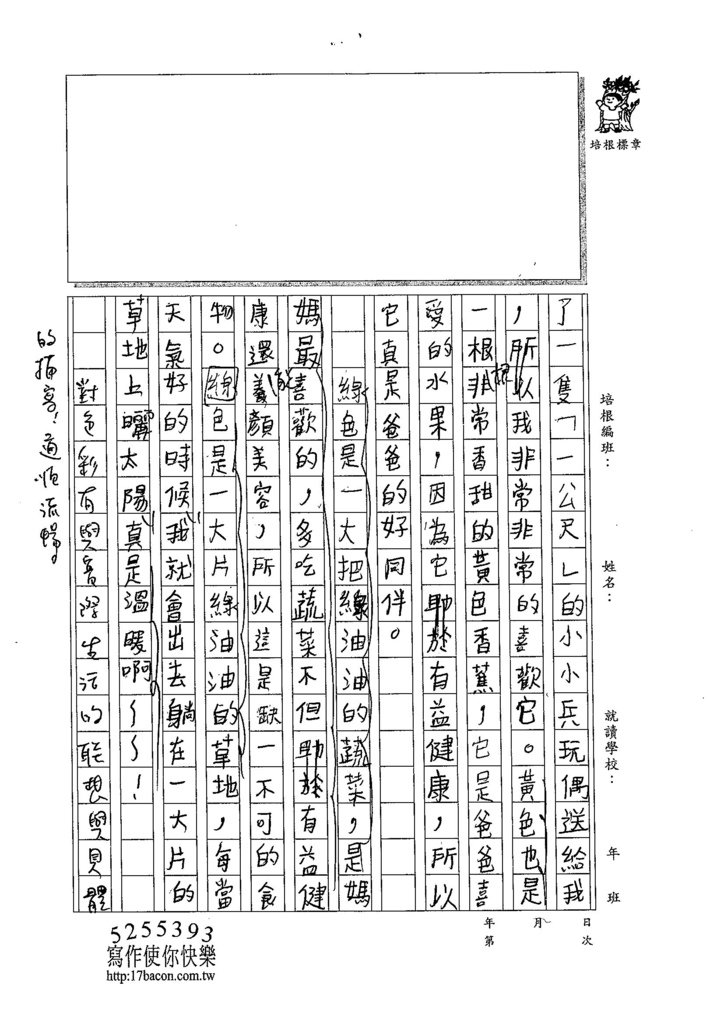 培根標章
培根編班：
姓名：
就讀學校：
年 班
年 月 日
第 次
了一隻「一公尺」的小小兵玩偶送給我
，所以我非常非常的喜歡它。黃色也是
一根非常香甜的黃色香蕉，它是爸爸喜
愛的水果，因為它助於有益健康，所以
它真是爸爸的好同伴。
綠色是一大把綠油油的蔬菜，是媽
媽最喜歡的，多吃蔬菜不但助於有益健
康還養顏美容，所以這是缺一不可的食
物。綠色是一大片綠油油的草地，每當
天氣好的時候，我就會出去躺在一大片的
草地上曬太陽，真是溫暖啊～～！
對色彩有與實際生活的聯想與具體
的描寫！通順流暢。
5255393
寫作使你快樂
http:17bacon.com.tw